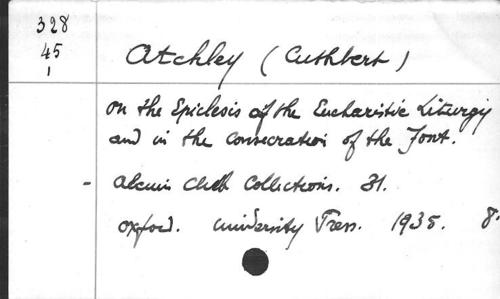 328
45
1
Atchley (Cuthbert)
On the Epiclesis of the Eucharistic Liturgy
and in the Consecration of the Font.
- Alcuin Club Collections. 31.
Oxford. University Press. 1935. 8.